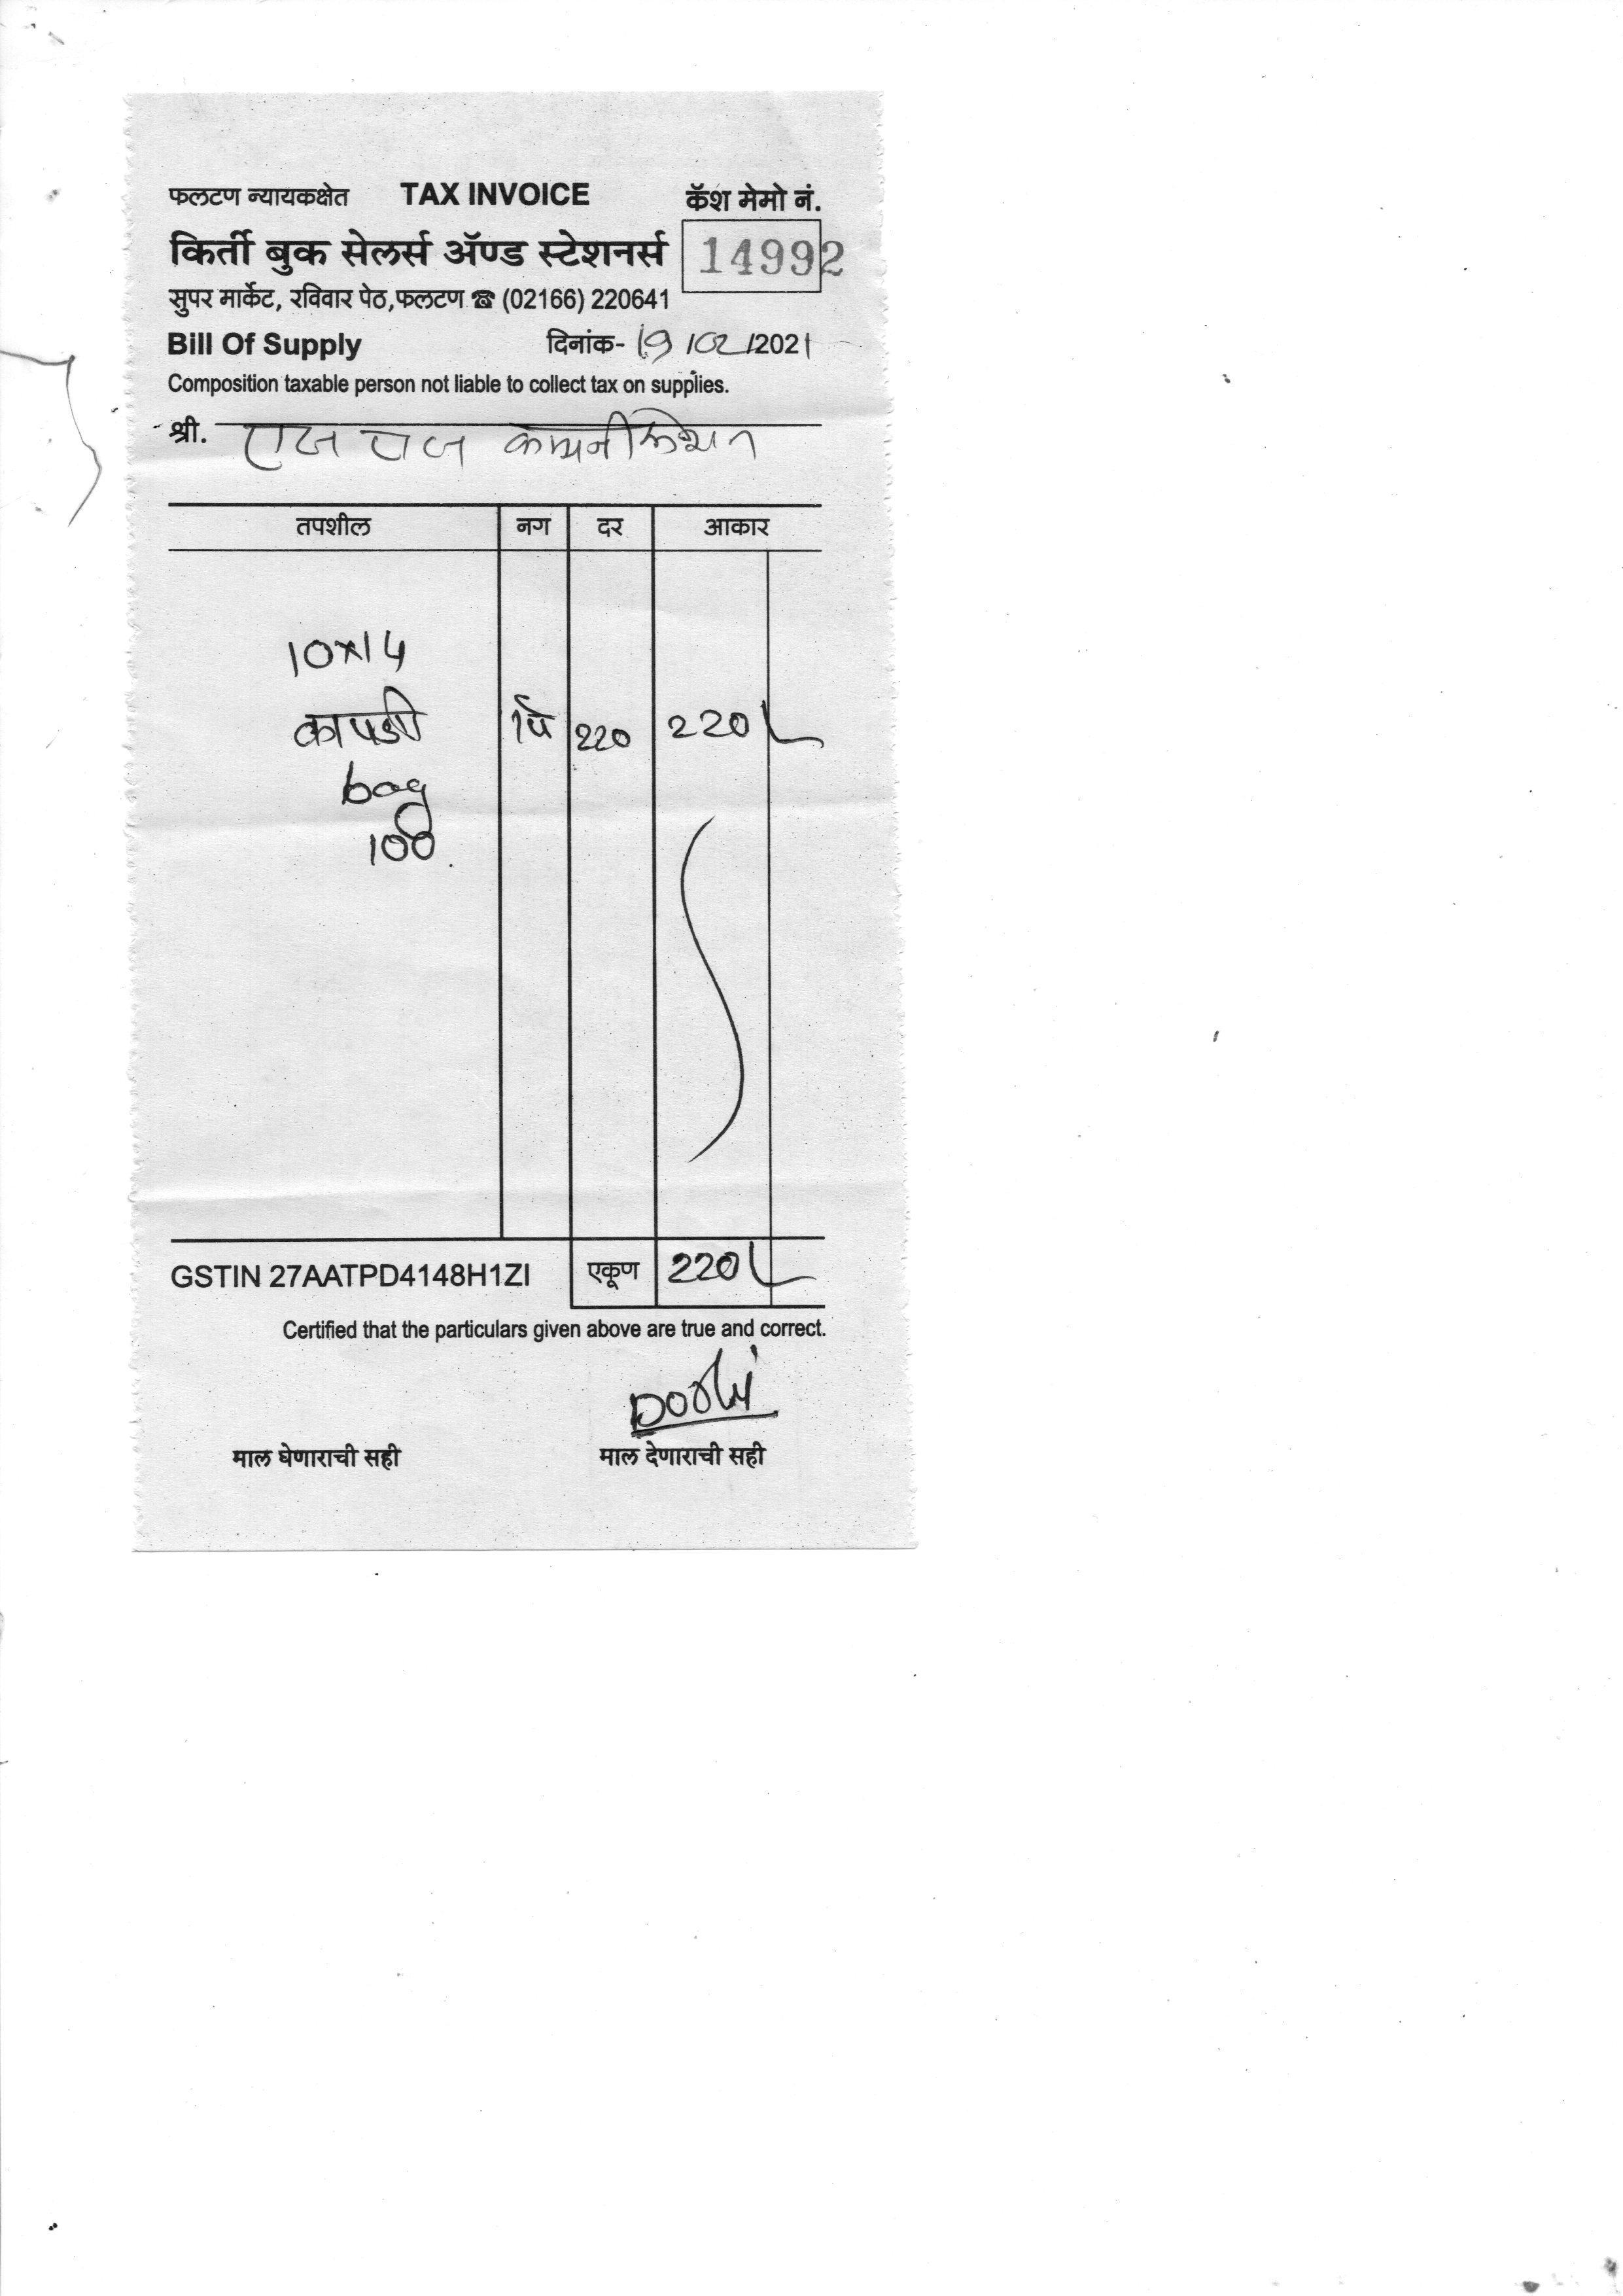 फलटण न्यायकक्षेत TAX INVOICE कॅश मेमो नं.
किर्ती बुक सेलर्स ॲण्ड स्टेशनर्स 14992
सुपर मार्केट, रविवार पेठ,फलटण ☎ (02166) 220641
Bill Of Supply दिनांक- 19/02/2021
Composition taxable person not liable to collect tax on supplies.
श्री.
तपशील नग दर आकार
10x14
कापडी 1पॅ 220 220/-
bag
100
GSTIN 27AATPD4148H1ZI एकूण 220/-
Certified that the particulars given above are true and correct.
Doshi
माल घेणाराची सही माल देणाराची सही